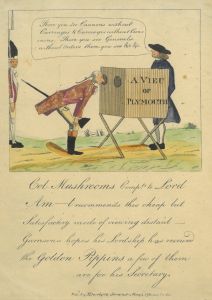 There you see Cannons without
Carriages & Carriages without Cann
-nons. There you see Generals
without Orders there you see &c &c
A VIEW
OF
PLYMOUTH
Col. Mushrooms Compts. to Lord
Am— recommends this cheap but
Satisfactory mode of viewing distant
Garrisons hopes his Lordship has received
the Golden Pippins a few of them
are for his Secretary